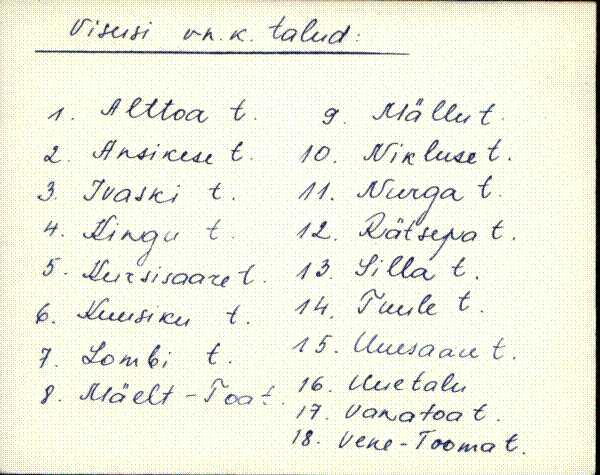 Visusi vn. k. talud:
1. Alttoa t.
2. Ansikese t.
3. Ivaski t.
4. Kingu t.
5. Kursisaare t.
6. Kuusiku t.
7. Lombi t.
8. Mäelt-Toa t.
9. Mällu t.
10. Nikluse t.
11. Nurga t.
12. Rätsepa t.
13. Silla t.
14. Tuule t.
15. Uuesaare t.
16. Uuetalu
17. Vanatoa t.
18. Vene-Tooma t.